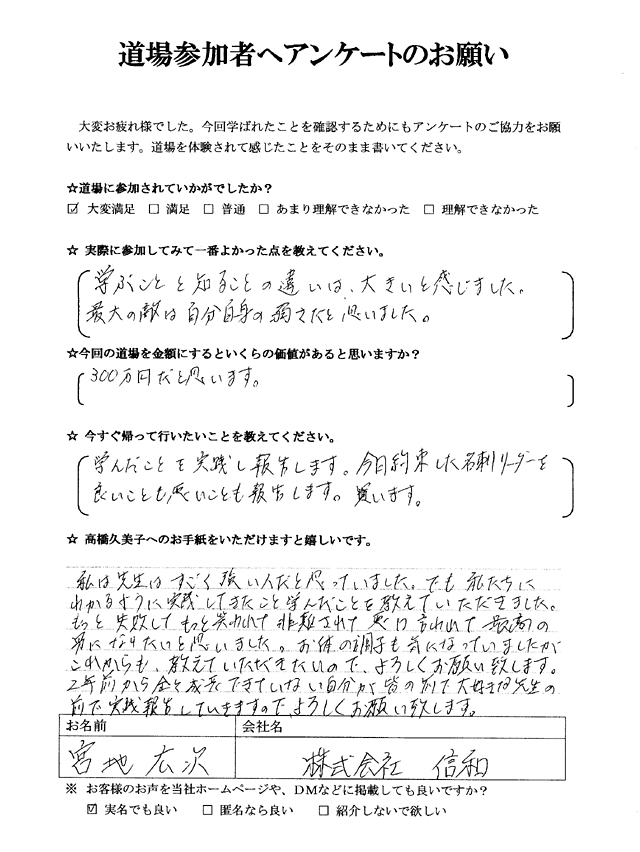 道場参加者へアンケートのお願い
大変お疲れ様でした。今回学ばれたことを確認するためにもアンケートのご協力をお願
いいたします。道場を体験されて感じたことをそのまま書いてください。
☆道場に参加されていかがでしたか？
☑ 大変満足 □ 満足 □ 普通 □ あまり理解できなかった □ 理解できなかった
☆ 実際に参加してみて一番よかった点を教えてください。
学ぶことと知ることの違いは、大きいと感じました。
最大の敵は自分自身の弱さだと思いました。
☆今回の道場を金額にするといくらの価値があると思いますか？
300万円だと思います。
☆ 今すぐ帰って行いたいことを教えてください。
学んだことを実践し報告します。今日約束した名刺リーダーを
良いことも悪いことも報告します。買います。
☆ 高橋久美子へのお手紙をいただけますと嬉しいです。
私は先生はすごく強い人だと思っていました。でも私たちに
わかるように実践してきたこと学んだことを教えていただきました。
もっと失敗してもっと笑われて非難されて悪口言われて最高の
男になりたいと思いました。お体の調子も気になっていましたが
これからも、教えていただきたいので、よろしくお願い致します。
2年前から全く成長できていない自分が皆の前で大好きな先生の
前で実践報告していきますので、よろしくお願い致します。
お名前 会社名
宮地 広次 株式会社 信和
※ お客様のお声を当社ホームページや、DMなどに掲載しても良いですか？
☑ 実名でも良い □ 匿名なら良い □ 紹介しないで欲しい